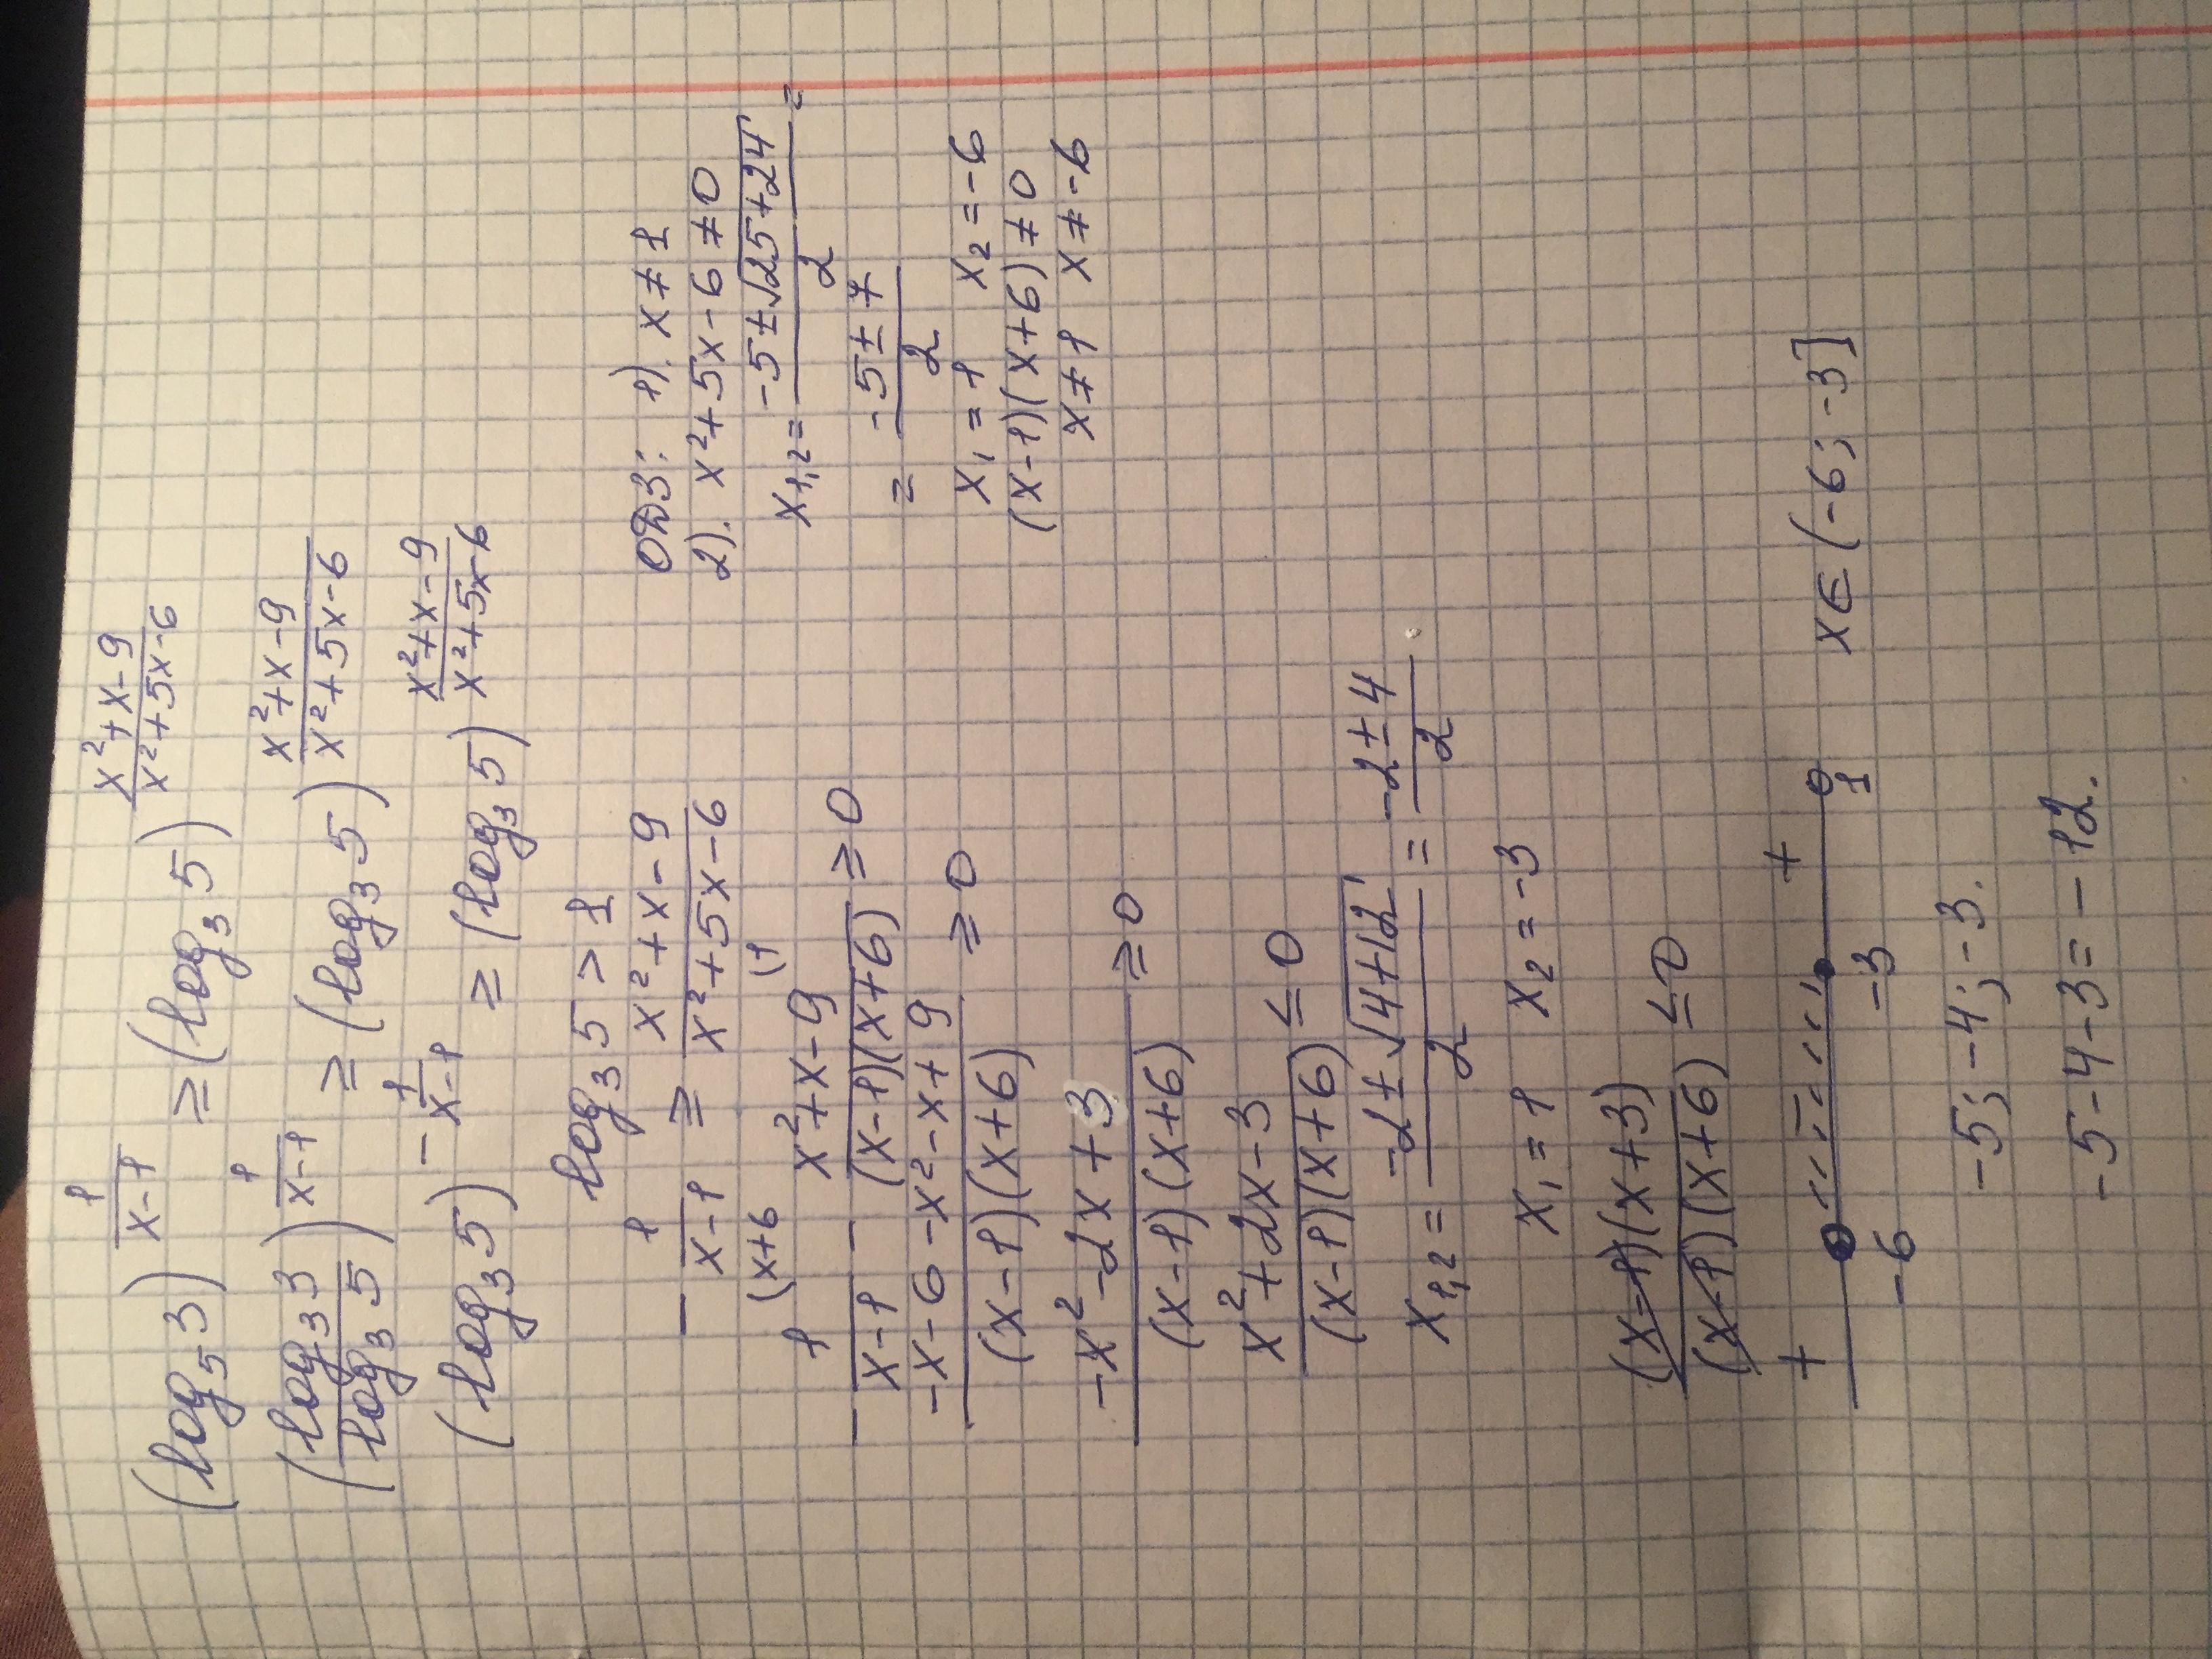 (log₅3)^(1/(x-1)) ≥ (log₃5)^((x²+x-9)/(x²+5x-6))
(log₃3/log₃5)^(1/(x-1)) ≥ (log₃5)^((x²+x-9)/(x²+5x-6))
(log₃5)^(-1/(x-1)) ≥ (log₃5)^((x²+x-9)/(x²+5x-6))
log₃5 > 1
-1/(x-1) ≥ (x²+x-9)/(x²+5x-6)
(x+6 (1
-1/(x-1) - (x²+x-9)/((x-1)(x+6)) ≥ 0
(-x-6-x²-x+9)/((x-1)(x+6)) ≥ 0
(-x²-2x+3)/((x-1)(x+6)) ≥ 0
(x²+2x-3)/((x-1)(x+6)) ≤ 0
x₁,₂ = (-2±√(4+12))/2 = (-2±4)/2
x₁=1 x₂=-3
((x-1)(x+3))/((x-1)(x+6)) ≤ 0
+ - +
-6 -3 1
x∈(-6;-3]
-5; -4; -3.
-5-4-3=-12.
ОДЗ: 1). x≠1
2). x²+5x-6≠0
x₁,₂ = (-5±√(25+24))/2 =
= (-5±7)/2
x₁=1 x₂=-6
(x-1)(x+6)≠0
x≠1 x≠-6